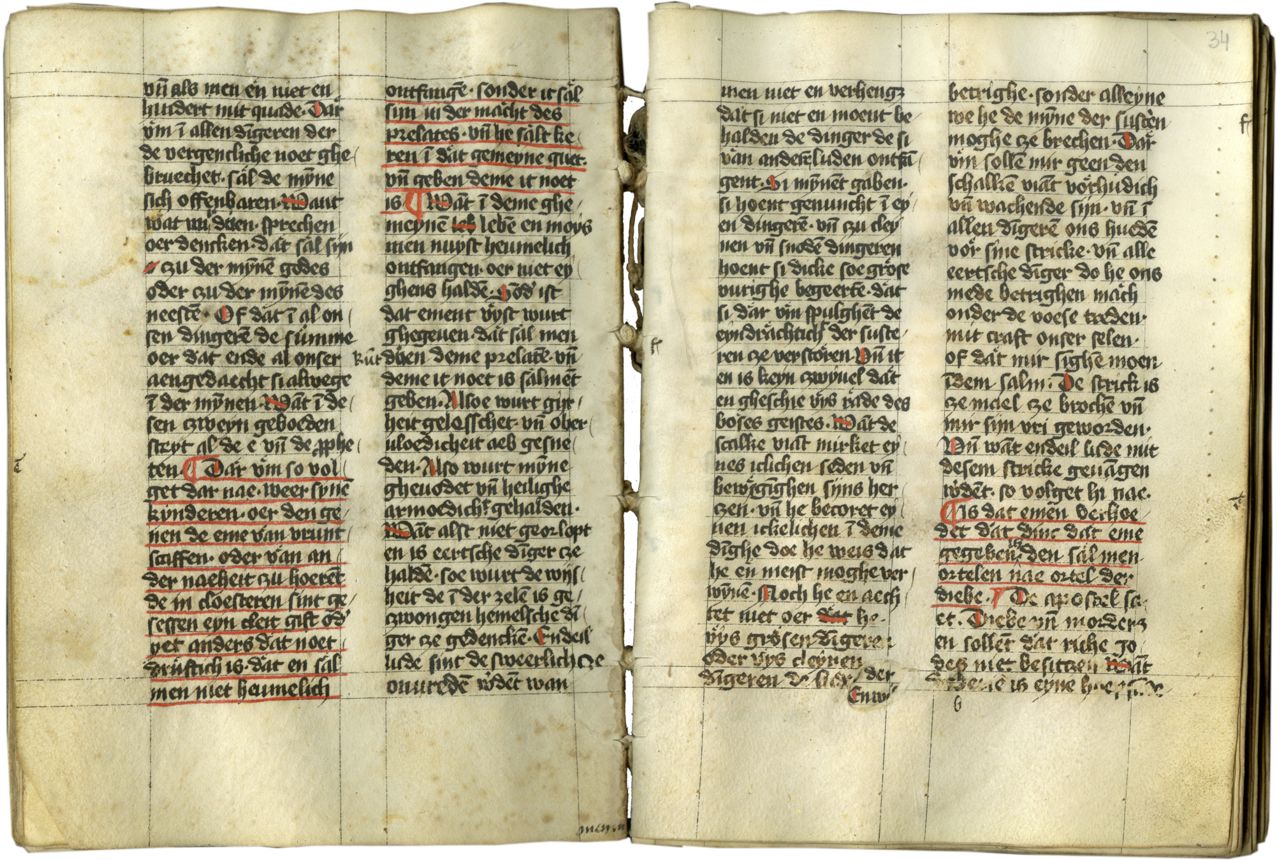 vn̄ als men en niet en
hundert mit quade. Dar
vm̄ ī allen dīgeren der
de vergencliche noet ghe
bruechet. sal de mȳne
sich offenbaren. Want
wat wi duen. sprechen
oer dencken. dat sal sijn
czu der mȳnen godes
oder czu der mȳnen des
neestē. Of dat ī al on
sen dingerē de summe
oer dat ende al onser
aengedaecht si alwege
ī der mȳnen Wāt ī de
sen czweyn geboeden
steyt al de e vn̄ de ꝓphe
ten. Dar vm̄ so vol
get dar nae. weer synē
kynderen. oer den ge
nen de eme van vrunt
scaffen. oder van an
der naeheit czu hoerent
de in cloesteren sint ge
sessen eyn cleit gift od'
yet anders dat noet
drustich is. dat en sal
men niet heumelich
ontfangē. sonder it sal
sijn in der macht des
prelates. vn̄ he salt ke
ren ī dat gemeyne guet.
vn̄ geben deme it noet
is Wāt ī deme ghe
meynē leben en moys
men nuyst heumelich
ontfangen. oer niet ey
ghens haldē. ist
dat ement vyst wurt
ghegeuen. dat sal men
kūt duen deme prelatē. vn̄
deme it noet is salmēt
geben. Alsoe wurt gir
heit gelesschet. vn̄ ober
uloedicheit aeb gesne
den. Also wurt mȳne
gheuodet vn̄ heilighe
armoedich̄t gehalden.
Wāt alst niet georlopt
en is eertsche dīger cze
haldē. soe wurt de wijs
heit de ī der zelen is ge
czwongen hemelsche dī
ger cze gedenckē. Endeil
lude sint de sweerlich cze
onuredē wdēt wan
men niet en verhengt
dat si niet en moent be
halden de dinger de si
van anderē luden ontfā
gent. Si mȳnent gaben.
si hoent genuucht ī ey
en dingerē. vn̄ czu cley
nen vn̄ snoden dingeren
hoent si dicke soe grose
vurighe begeerte. dat
si dar vm̄ spulghēt de
eyndrāchtich̄t der suste
ren cze verstoren. Vn̄ it
en is keyn czwyuel dat
en gheschie vys rade des
boses geistes. Wāt de
scalke viāt mirket ey
nes iclichen seden vn̄
bewegīghen syns her
czen. vn̄ he becoret ey
nen ickelichen ī deme
dīghe doe he weis dat
he en meist moghe ver
wȳnē. Noch he en aech
tet niet oer he
vys grosen dīgeren
oder vys cleynen
dīgeren de lude der
Enw
34
betrighe. sonder alleyne
we he de mȳne der sustē
moghe cze brechen. Dar
vm̄ sollē mir geen den
schalkē viāt vorhudich
vn̄ wachende sijn. vn̄ ī
allen dīgerē ons hueden
vor sine stricke. vn̄ alle
eertsche dīger do he ons
mede betrighen mach
onder de voese treden.
mit craft onser selen.
of dat mir sighen moen
īdem salm. De strick is
cze mael cze brochē vn̄
mir sijn vri geworden.
Vn̄ wāt endeil lude mit
desem stricke geuāgen
wdēt. so volget hi nae.
Is dat emen verhoe
det dat dinc dat eme
gegebenis den sal men
ortelen nae ortel der
diebe. De apostel sa
et. Diebe vn̄ morders
en sollēt dat riche go
des niet besitzen Wāt
is eyne